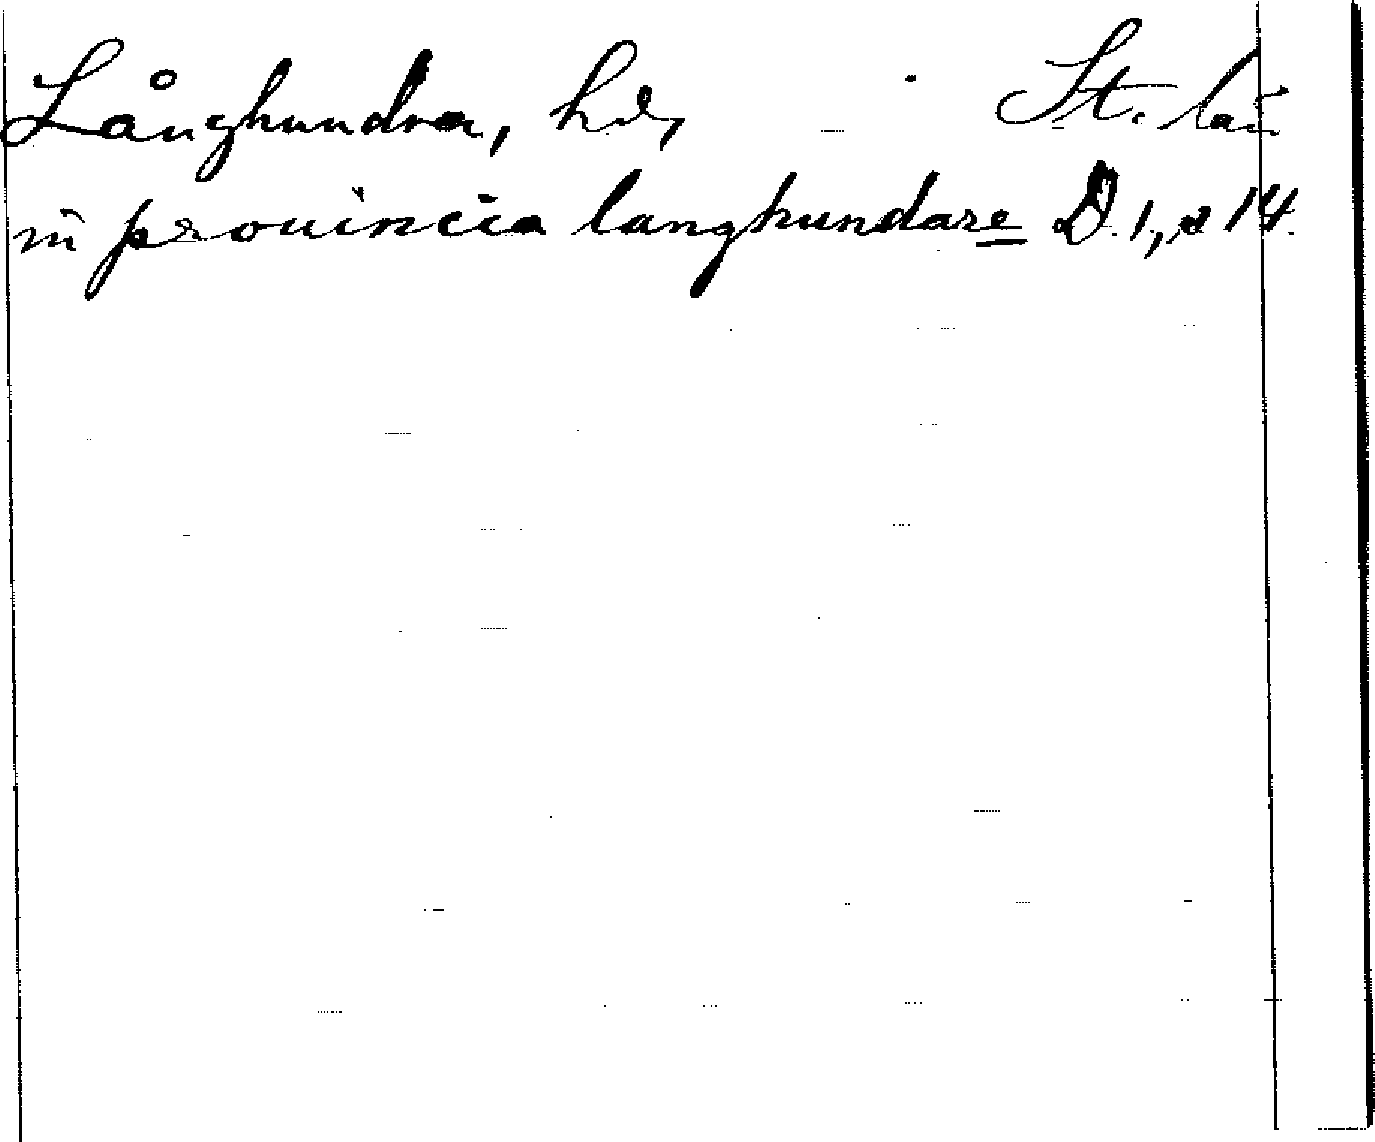 Långhundra, hd, St. län
in prouincia langhundare D. 1, s 14.